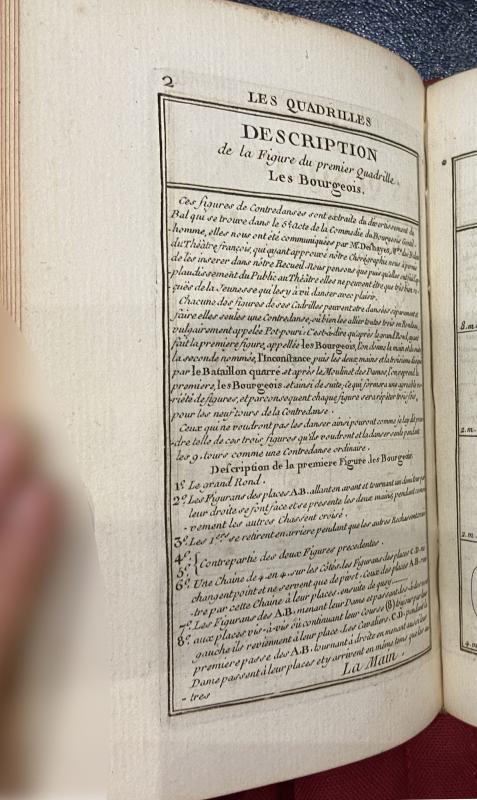 2
LES QUADRILLES
DESCRIPTION
de la Figure du premier Quadrille.
Les Bourgeois.
Ces figures de Contredanses sont extraite du divertissement du
Bal qui se trouve dans le 5.e Acte de la Commedie du Bourgeois Gentil-
homme, elles nous ont été communiquées par Mr. Deshayes, Mtre. des Ballets
du Théâtre françois, qui ayant approuvé nôtre Chorégraphie nous a permis
de les inserer dans nôtre Recueil. Nous pensons que puis qu'elles ont
plaudissement du Public au Théâtre elles ne peuvent être que très bien
çuës de la Jeunesse qui les y a vû danser avec plaisir.
Chacune des figures de ses Cadrilles peuvent etre dansées séparement et
faire elles seules une Contredanse, ou bien les aller toutes trois en Rondeau,
vulgairement appelée Potpouri: C'est-à-dire qu'après le grand Rond, quant
fait la premiere figure, appellée les Bourgeois, l'on donne la main et
la seconde nommée, l'Inconstance, puis les deux mains et la troisieme
par le Bataillon quarré et après le Moulinet des Dames, l'on reprend la
premiere, les Bourgeois et ainsi de suite; ce qui formera une agreable va-
-riété de figures, et par consequent chaque figure sera répéter trois fois,
pour les neuf tours de la Contredanse.
Ceux qui ne voudront pas les danser ainsi pouront comme je l'ay dit pren-
-dre telle de ces trois figures qu'ils voudront et la danser seule pendant
les 9. tours comme une Contredanse ordinaire.
Description de la premiere Figure des Bourgeois.
1.e Le grand Rond.
2.e Les Figurans des places A.B. allant en avant et tournant un demi tour par
leur droite se font face et se presente les deux mains, pendant
- vement les autres Chassent croisé.
3.e Les 1.ers se retirent en arriere pendant que les autres Rechassent
4.e
5.e { Contrepartie des deux Figures precedentes.
6.e Une Chaine de 4. en 4. sur les Côtés, les Figurans des places C.D. ne
changent point et ne servent que de pivot. Ceux des places A.B.
tre par cette Chaine à leur places. ensuite de quoy
7.e Les Figurans des A.B. menant leur Dame et passant
8.e aux places vis-à-vis où continuant leur course (8) toujours par leur
gauche ils reviennent à leur place. Les Cavaliers C.D. pendant la
premiere passe des A.B. tournant à droite en menant
Dame passent à leur places et y arrivent en même tems que les
- tres
La Main.
8. m
2. m
2. m
4. m